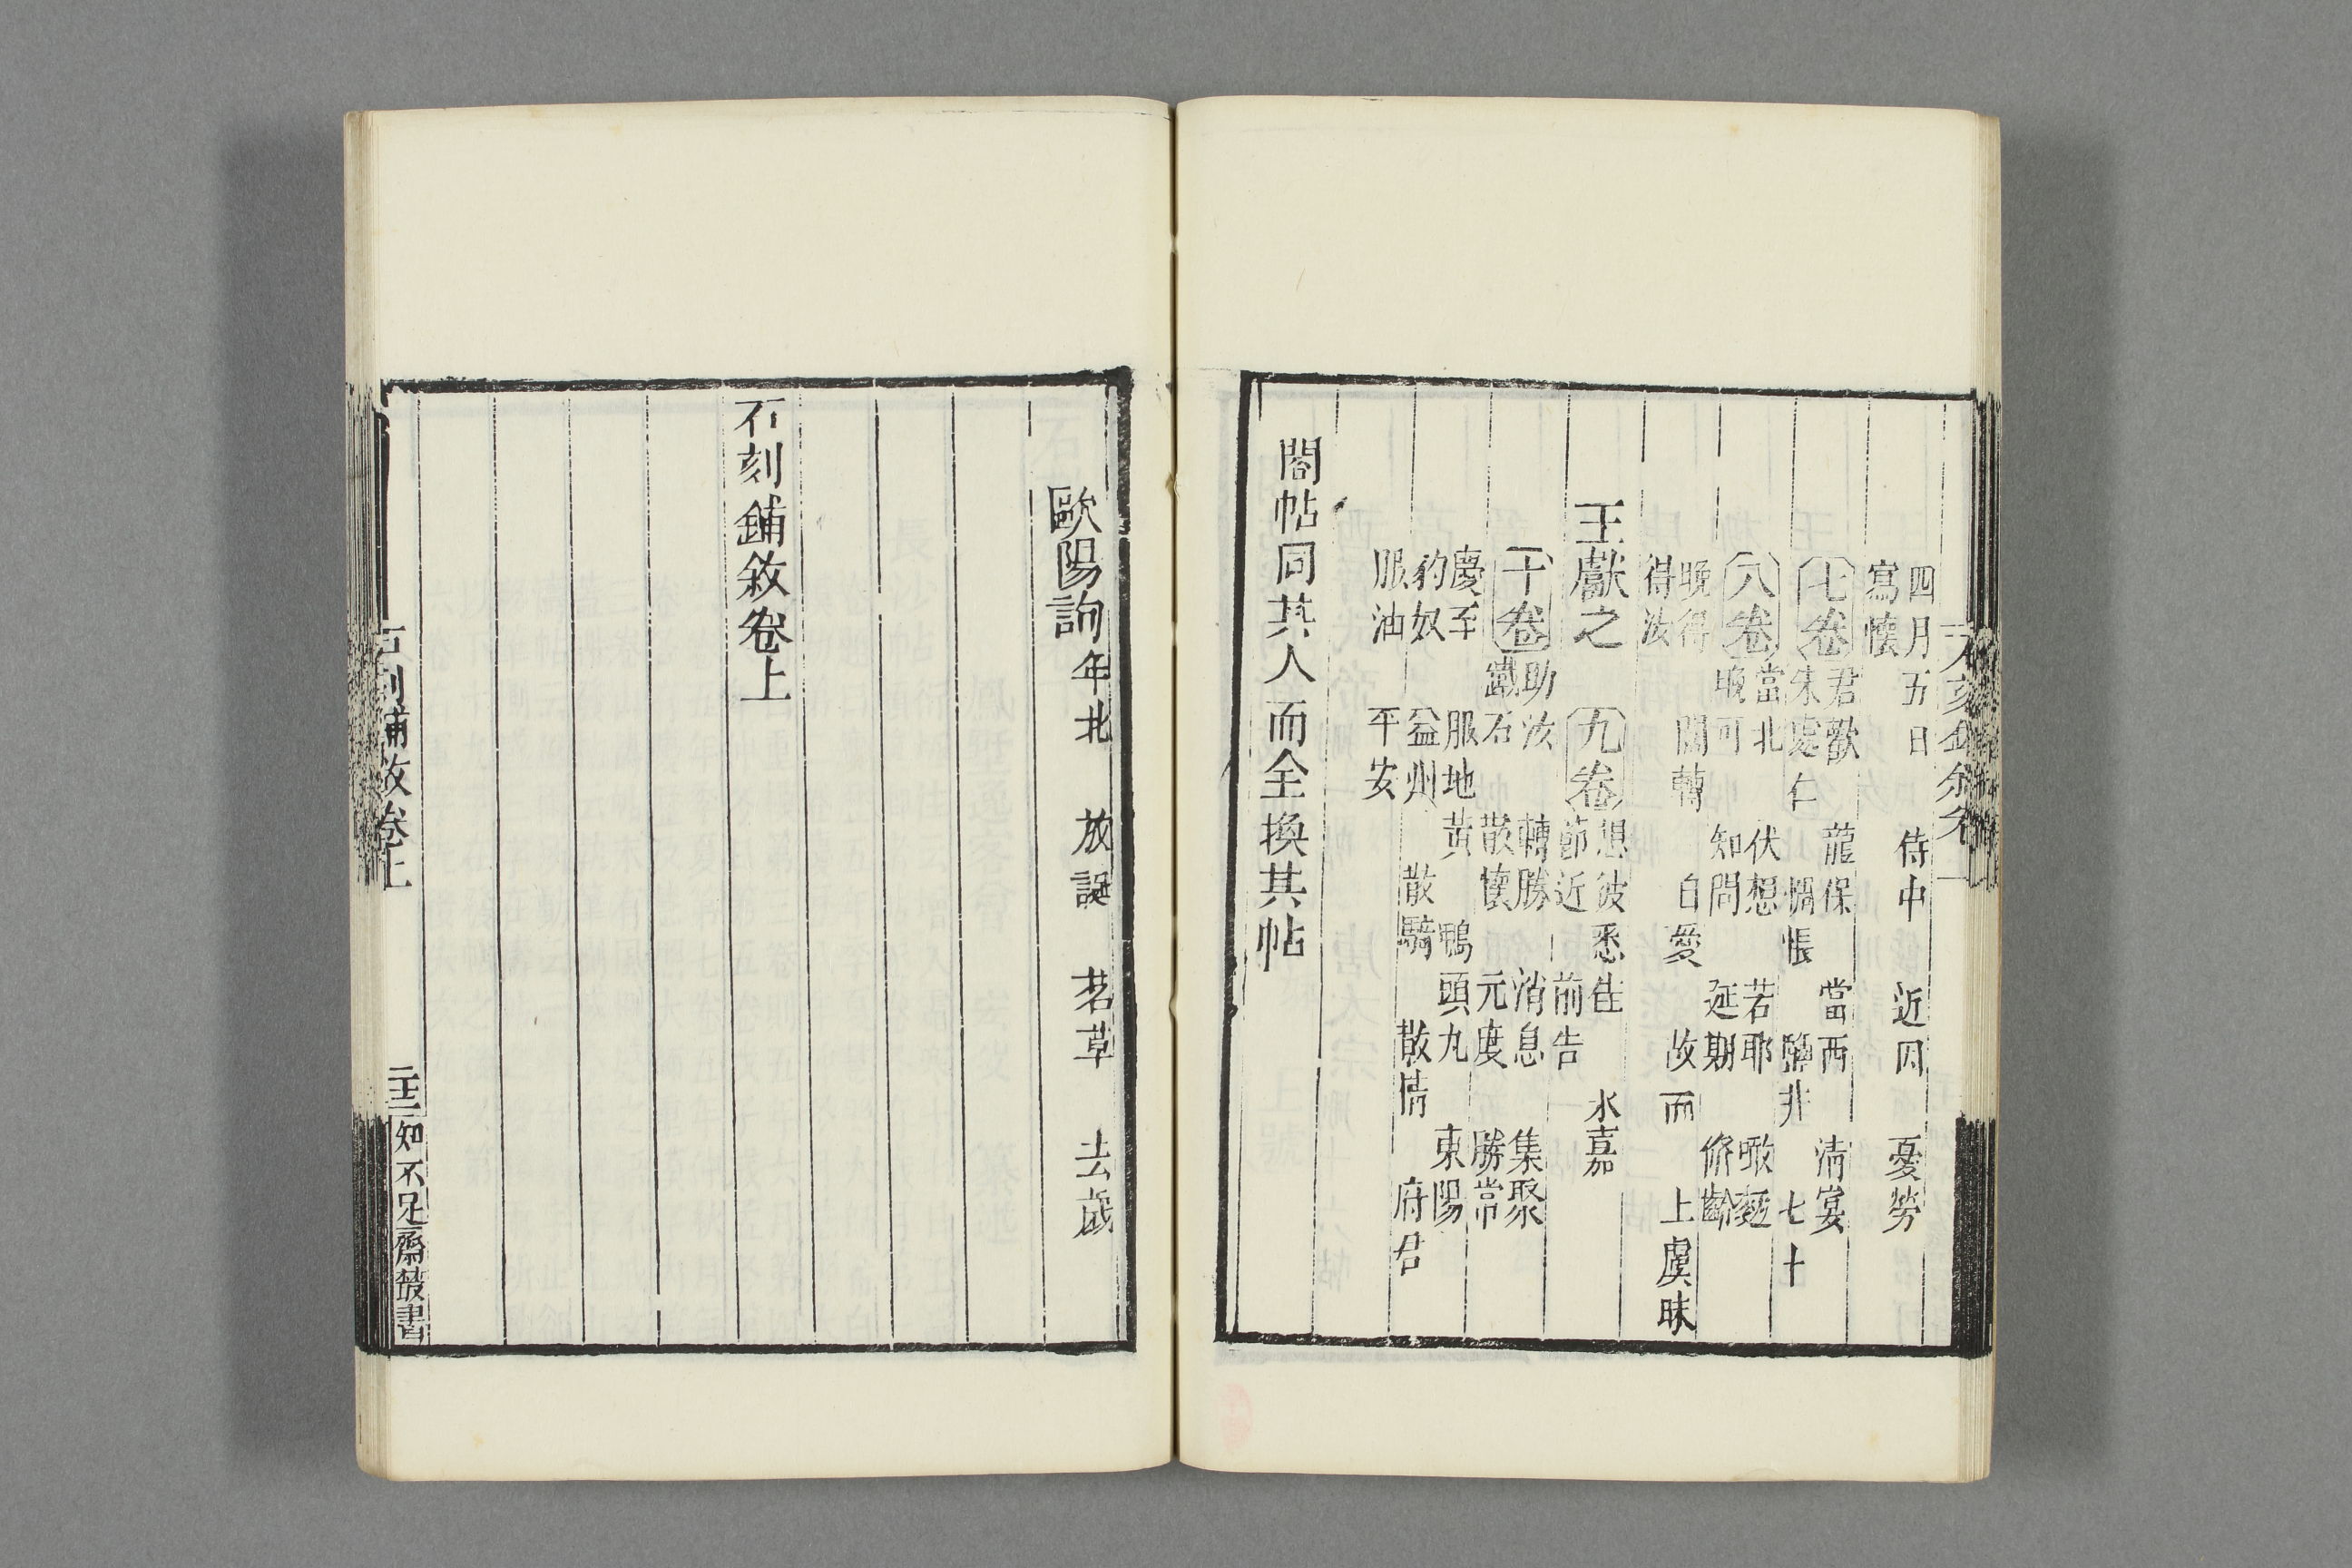 四月五日　侍中　近因　憂勞
寫懷
七卷　君歡　龍保　當西　清宴
朱處仁　惆悵　鹽井　七十
八卷　當北　伏想　若耶　噉麵
晚可　知問　延期　脩齡
晚得　闊轉　自愛　故而　上虞昧
得汝
王獻之　九卷　思彼悉佳　永嘉
節近　前告
十卷　助汝　轉勝　消息　集聚
鐵石　散懷　元度　勝常
慶至　服地黃　鴨頭丸　東陽
豹奴　益州　散騎　散情　府君
服油　平安
閣帖同其人而全換其帖
歐陽詢　年北　放誕　若草　去歲
石刻鋪敘卷上
石刻鋪敘卷上　知不足齋叢書